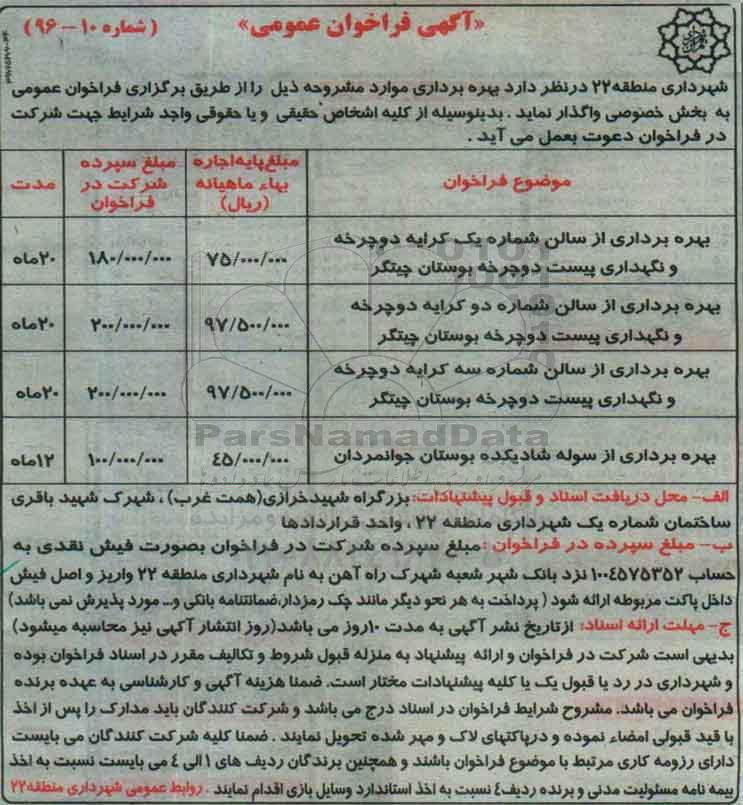 «آگهی فراخوان عمومی» (شماره ۱۰ - ۹۶)
شهرداری منطقه ۲۲ درنظر دارد بهره برداری موارد مشروحه ذیل را از طریق برگزاری فراخوان عمومی
به بخش خصوصی واگذار نماید . بدینوسیله از کلیه اشخاص حقیقی و یا حقوقی واجد شرایط جهت شرکت
در فراخوان دعوت بعمل می آید .
موضوع فراخوان | مبلغ پایه اجاره بهاء ماهیانه (ریال) | مبلغ سپرده شرکت در فراخوان | مدت
بهره برداری از سالن شماره یک کرایه دوچرخه
و نگهداری پیست دوچرخه بوستان چیتگر | ۷۵/۰۰۰/۰۰۰ | ۱۸۰/۰۰۰/۰۰۰ | ۲۰ماه
بهره برداری از سالن شماره دو کرایه دوچرخه
و نگهداری پیست دوچرخه بوستان چیتگر | ۹۷/۵۰۰/۰۰۰ | ۲۰۰/۰۰۰/۰۰۰ | ۲۰ماه
بهره برداری از سالن شماره سه کرایه دوچرخه
و نگهداری پیست دوچرخه بوستان چیتگر | ۹۷/۵۰۰/۰۰۰ | ۲۰۰/۰۰۰/۰۰۰ | ۲۰ماه
بهره برداری از سوله شادیکده بوستان جوانمردان | ۴۵/۰۰۰/۰۰۰ | ۱۰۰/۰۰۰/۰۰۰ | ۱۲ماه
ParsNamadData
الف- محل دریافت اسناد و قبول پیشنهادات: بزرگراه شهیدخرازی(همت غرب) ، شهرک شهید باقری
ساختمان شماره یک شهرداری منطقه ۲۲ ، واحد قراردادها
ب- مبلغ سپرده در فراخوان :مبلغ سپرده شرکت در فراخوان بصورت فیش نقدی به
حساب ۱۰۰۴۵۷۵۳۵۲ نزد بانک شهر شعبه شهرک راه آهن به نام شهرداری منطقه ۲۲ واریز و اصل فیش
داخل پاکت مربوطه ارائه شود ( پرداخت به هر نحو دیگر مانند چک رمزدار،ضمانتنامه بانکی و... مورد پذیرش نمی باشد)
ج- مهلت ارائه اسناد: ازتاریخ نشر آگهی به مدت ۱۰روز می باشد(روز انتشار آگهی نیز محاسبه میشود)
بدیهی است شرکت در فراخوان و ارائه پیشنهاد به منزله قبول شروط و تکالیف مقرر در اسناد فراخوان بوده
و شهرداری در رد یا قبول یک یا کلیه پیشنهادات مختار است. ضمنا هزینه آگهی و کارشناسی به عهده برنده
فراخوان می باشد. مشروح شرایط فراخوان در اسناد درج می باشد و شرکت کنندگان باید مدارک را پس از اخذ
با قید قبولی امضاء نموده و درپاکتهای لاک و مهر شده تحویل نمایند . ضمنا کلیه شرکت کنندگان می بایست
دارای رزومه کاری مرتبط با موضوع فراخوان باشند و همچنین برندگان ردیف های ۱ الی ۴ می بایست نسبت به اخذ
بیمه نامه مسئولیت مدنی و برنده ردیف۴ نسبت به اخذ استاندارد وسایل بازی اقدام نمایند . روابط عمومی شهرداری منطقه۲۲